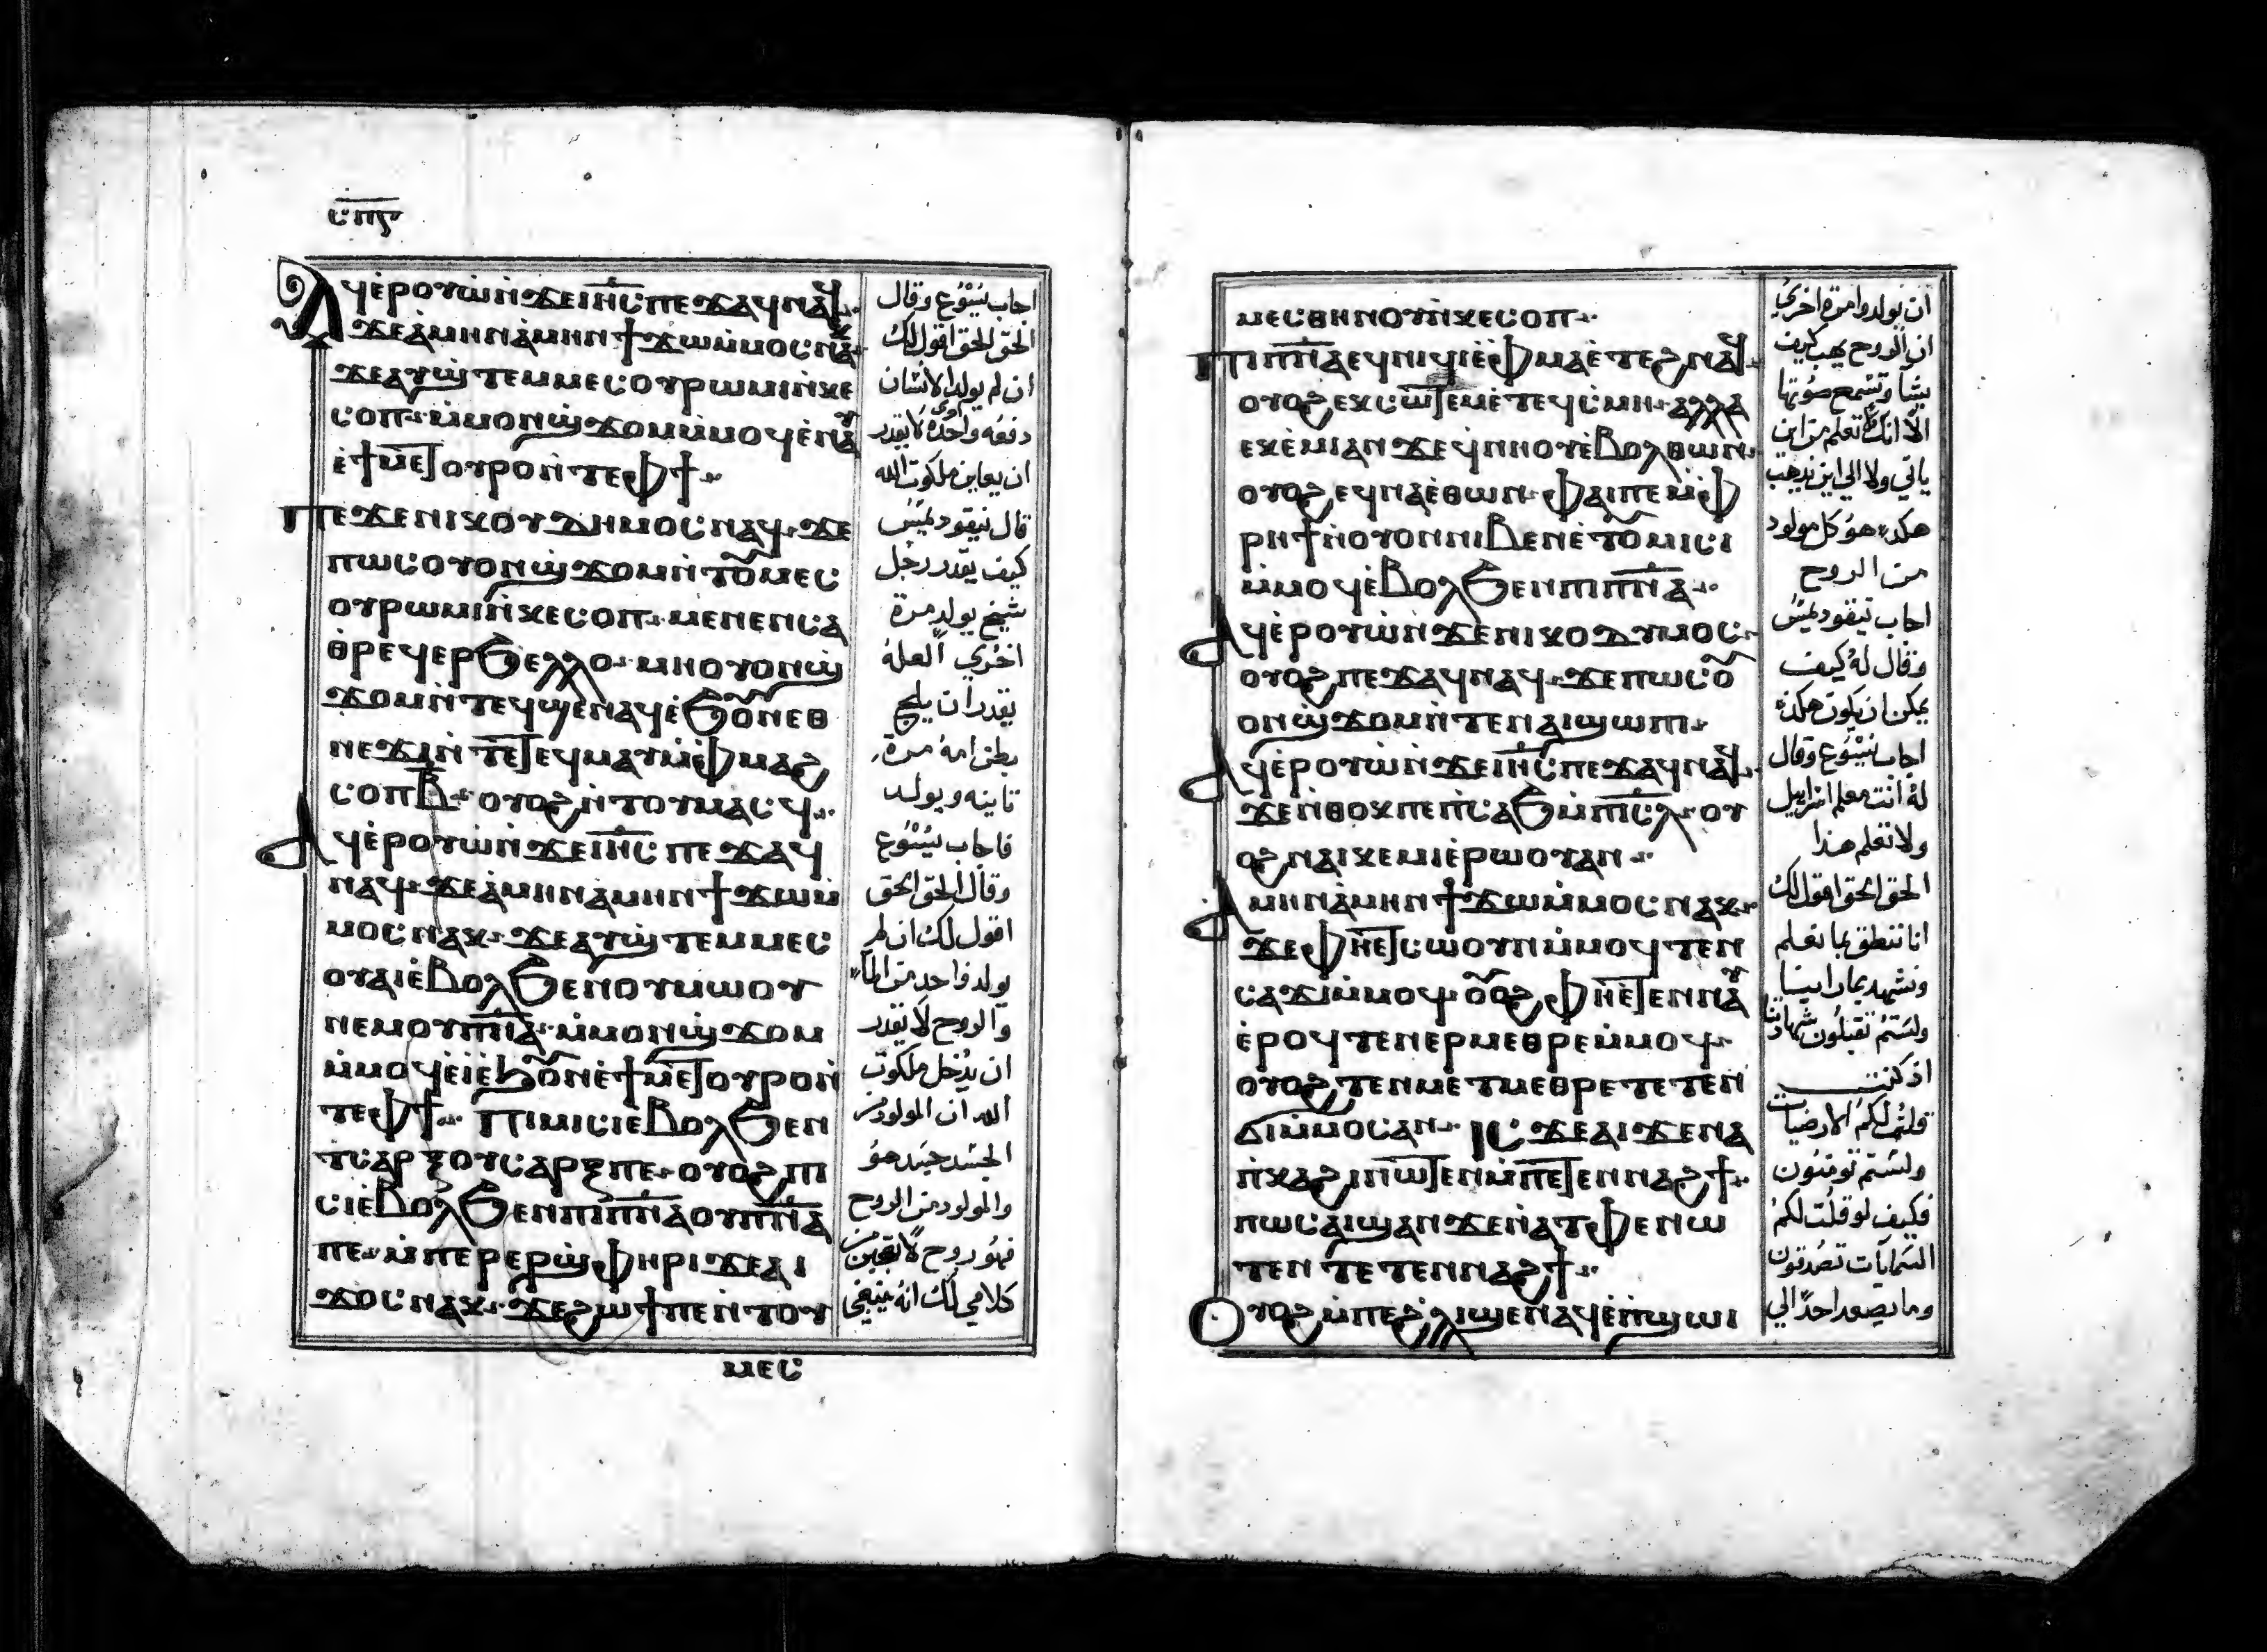 ⲥⲡⲋ
Ⲁϥⲉ̀ⲣⲟⲩⲱ̀ⲛ̀ϫⲉⲓⲏ̅ⲥ̅ⲡⲉϫⲁϥⲛⲁϥ
ϫⲉⲁ̀ⲙⲏⲛⲁ̀ⲙⲏⲛϯϫⲱⲙ̀ⲙⲟⲥⲛⲁⲭ
ϫⲉⲁⲩϣ̀ⲧⲉⲙⲙⲉⲥⲟⲩⲣⲱⲙⲓⲛ̀ⲕⲉ
ⲥⲟⲡ ⲙ̀ⲙⲟⲛϣ̀ϫⲟⲙⲙ̀ⲙⲟϥⲉ̀ⲛⲁⲩ
ⲉ̀ϯⲙⲉⲧⲟⲩⲣⲟⲛ̀ⲧⲉⲫϯ
Ⲡⲉϫⲉⲛⲓⲭⲟⲩⲇⲏⲙⲟⲥⲛⲁϥ ϫⲉ
ⲡⲱⲥⲟⲩⲟⲛϣ̀ϫⲟⲙⲛ̀ⲧⲟⲩⲙⲉⲥ
ⲟⲩⲣⲱⲙⲓⲛ̀ⲕⲉⲥⲟⲡ ⲙⲉⲛⲉⲛⲥⲁ
ⲑⲣⲉϥⲉⲣϧⲉⲗⲗⲟ ⲙⲏⲟⲩⲟⲛϣ̀
ϫⲟⲙⲛ̀ⲧⲉϥϣⲉⲛⲁϥⲉ̀ϧⲟⲩⲛⲉⲑ
ⲛⲉϫⲓⲛ̀ⲧⲉⲧⲉϥⲙⲁⲩⲙ̀ⲫⲙⲁϩ
ⲥⲟⲡⲃ̅ ⲟⲩⲟϩⲛ̀ⲧⲟⲩⲙⲁⲥϥ
Ⲁϥⲉ̀ⲣⲟⲩⲱ̀ⲛ̀ϫⲉⲓⲏ̅ⲥ̅ ⲡⲉϫⲁϥ
ⲛⲁϥ ϫⲉⲁ̀ⲙⲏⲛⲁ̀ⲙⲏⲛϯϫⲱⲙ̀
ⲙⲟⲥⲛⲁⲭ ϫⲉⲁⲩϣ̀ⲧⲉⲙⲙⲉⲥ
ⲟⲩⲁⲓⲉ̀ⲃⲟⲗϧⲉⲛⲟⲩⲙⲱⲟⲩ
ⲛⲉⲙⲟⲩⲡ̅ⲛ̅ⲁ̅ ⲙ̀ⲙⲟⲛϣ̀ϫⲟⲙ
ⲙ̀ⲙⲟϥⲉ̀ⲓⲉ̀ϧⲟⲩⲛⲉ̀ϯⲙⲉⲧⲟⲩⲣⲟⲛ̀
ⲧⲉⲫϯ Ⲡⲓⲙⲓⲥⲓⲉ̀ⲃⲟⲗϧⲉⲛ
ⲧⲥⲁⲣⲝⲟⲩⲥⲁⲣⲝⲡⲉ ⲟⲩⲟϩⲡⲓ
ⲥⲓⲉ̀ⲃⲟⲗϧⲉⲛⲡⲓⲡ̅ⲛ̅ⲁ̅ⲟⲩⲡ̅ⲛ̅ⲁ̅
ⲡⲉ ⲙ̀ⲡⲉⲣⲉⲣϣ̀ⲫⲏⲣⲓϫⲉⲁⲓ
ϫⲟⲥⲛⲁⲭ ϫⲉϩⲱϯⲡⲉⲛ̀ⲧⲟⲩ
ⲙⲉⲥ
اجاب يسوع وقال
الحق الحق اقول لك
ان لم يولد الانسان
دفعه واحده اخرى لا يقدر
ان يعاين ملكوت الله
قال نيقوديمس
كيف يقدر رجل
شيخ يولد مرة
اخري العله
يقدر ان يلج
بطن امه مرة
ثانيه ويولد
فاجاب يسوع
وقال الحق الحق
اقول لك ان لم
يولد واحد من الماء
والروح لا يقدر
ان يدخل ملكوت
الله ان المولود من
الجسد جسد هو
والمولود من الروح
فهو روح لا تعجبن من
كلامي لك انه ينبغي
ⲙⲉⲥⲑⲏⲛⲟⲩⲛ̀ⲕⲉⲥⲟⲡ
Ⲡⲓⲡ̅ⲛ̅ⲁ̅ⲉϥⲛⲓϥⲓⲉ̀ⲫⲙⲁⲉ̀ⲧⲉϩⲛⲁϥ
ⲟⲩⲟϩⲉⲭⲥⲱⲧⲉⲙⲉ̀ⲧⲉϥⲥⲙⲏ ⲁⲗⲗⲁ
ⲉⲭⲉ̀ⲙⲓⲁⲛ ϫⲉϥⲛⲛⲟⲩⲉ̀ⲃⲟⲗⲑⲱⲛ
ⲟⲩⲟϩⲉϥⲛⲁⲉ̀ⲑⲱⲛ ⲫⲁⲓⲡⲉⲙ̀ⲫ
ⲣⲏϯⲛ̀ⲟⲩⲟⲛⲛⲓⲃⲉⲛⲉ̀ⲧⲟⲩⲙⲓⲥⲓ
ⲙ̀ⲙⲟϥⲉ̀ⲃⲟⲗϧⲉⲛⲡⲓⲡ̅ⲛ̅ⲁ̅
Ⲁϥⲉ̀ⲣⲟⲩⲱ̀ⲛ̀ϫⲉⲛⲓⲭⲟⲇⲩⲙⲟⲥ
ⲟⲩⲟϩⲡⲉϫⲁϥⲛⲁϥ ϫⲉⲡⲱⲥⲟⲩ
ⲟⲛϣ̀ϫⲟⲙⲛ̀ⲧⲉⲛⲁⲓϣⲱⲡⲓ
Ⲁϥⲉ̀ⲣⲟⲩⲱ̀ⲛ̀ϫⲉⲓⲏ̅ⲥ̅ⲡⲉϫⲁϥⲛⲁϥ
ϫⲉⲛ̀ⲑⲟⲭⲡⲉⲡ̀ⲥⲁϧⲙ̀ⲡⲓⲥ̅ⲗ̅ ⲟⲩ
ⲟϩⲛⲁⲓⲭⲉⲙⲓⲉ̀ⲣⲱⲟⲩⲁⲛ
Ⲁⲙⲏⲛⲁ̀ⲙⲏⲛϯϫⲱⲙ̀ⲙⲟⲥⲛⲁⲭ
ϫⲉⲫⲏⲉ̀ⲧⲉⲥⲱⲟⲩⲛⲙ̀ⲙⲟϥ ⲧⲉⲛ
ⲥⲁϫⲓⲙ̀ⲙⲟϥ ⲟⲩⲟϩ ⲫⲏⲉ̀ⲧⲉⲛⲛⲁⲩ
ⲉ̀ⲣⲟϥⲧⲉⲛⲉⲣⲙⲉⲑⲣⲉⲙ̀ⲙⲟϥ
ⲟⲩⲟϩⲧⲉⲛⲙⲉⲧⲙⲉⲑⲣⲉⲧⲉⲧⲉⲛ
ϭⲓⲙ̀ⲙⲟⲥⲁⲛ Ⲓⲥϫⲉⲁⲓϫⲉⲛⲁ
ⲛ̀ⲕⲁϩⲓⲛⲱⲧⲉⲛⲙ̀ⲡⲉⲧⲉⲛⲛⲁϩϯ
ⲡⲱⲥⲁⲓϣⲁⲛϫⲉⲛⲁⲧⲫⲉⲛⲱ
ⲧⲉⲛ ⲧⲉⲧⲉⲛⲛⲁϩϯ
Ⲟⲩⲟϩⲙ̀ⲡⲉϩⲗⲓϣⲉⲛⲁϥⲉ̀ⲡϣⲱⲓ
ان يولدوا مرة اخري
ان الروح يهب كيف
يشا وتسمع صوتها
الا انك لا تعلم من اين
ياتي ولا الي اين يذهب
هكذا هو كل مولود
من الروح
اجاب نيقوديمس
وقال له كيف
يمكن ان يكون هكذا
اجاب يسوع وقال
له انت معلم اسراييل
ولا تعلم هذا
الحق الحق اقول لك
اننا ننطق بما نعلم
ونشهد بما راينا
ولستم تقبلون شهادتنا
اذ كنت
قلت لكم الارضيات
ولستم تومنون
فكيف لو قلت لكم
السمايات تصدقون
وما يصعد احدا الي